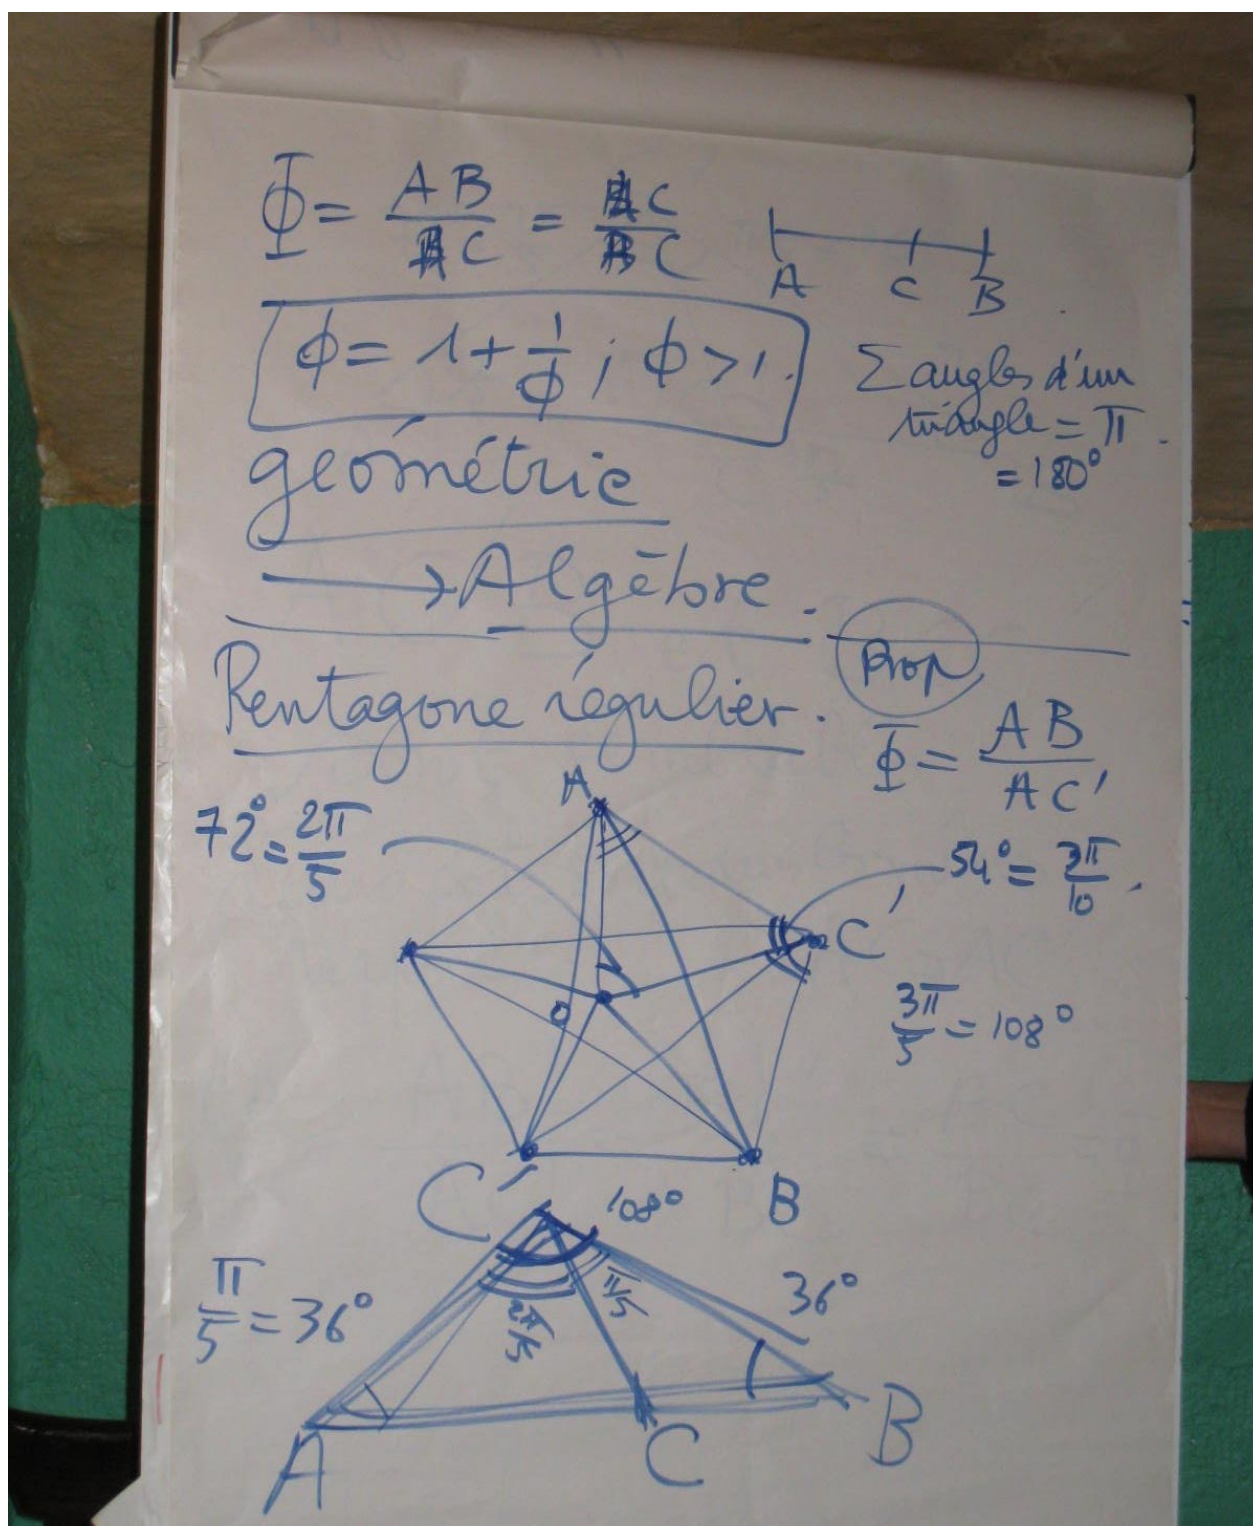 Φ = AB/AC = AC/BC
A C B
ϕ = 1 + 1/ϕ ; ϕ > 1.
Σ angles d'un
triangle = π.
= 180°
géométrie
→ Algèbre.
Prop
Pentagone régulier.
Φ = AB/AC'
A
72° = 2π/5
54° = 3π/10.
C'
3π/5 = 108°
O
C' 108° B
π/5 = 36°
2π/5 π/5 36°
A C B